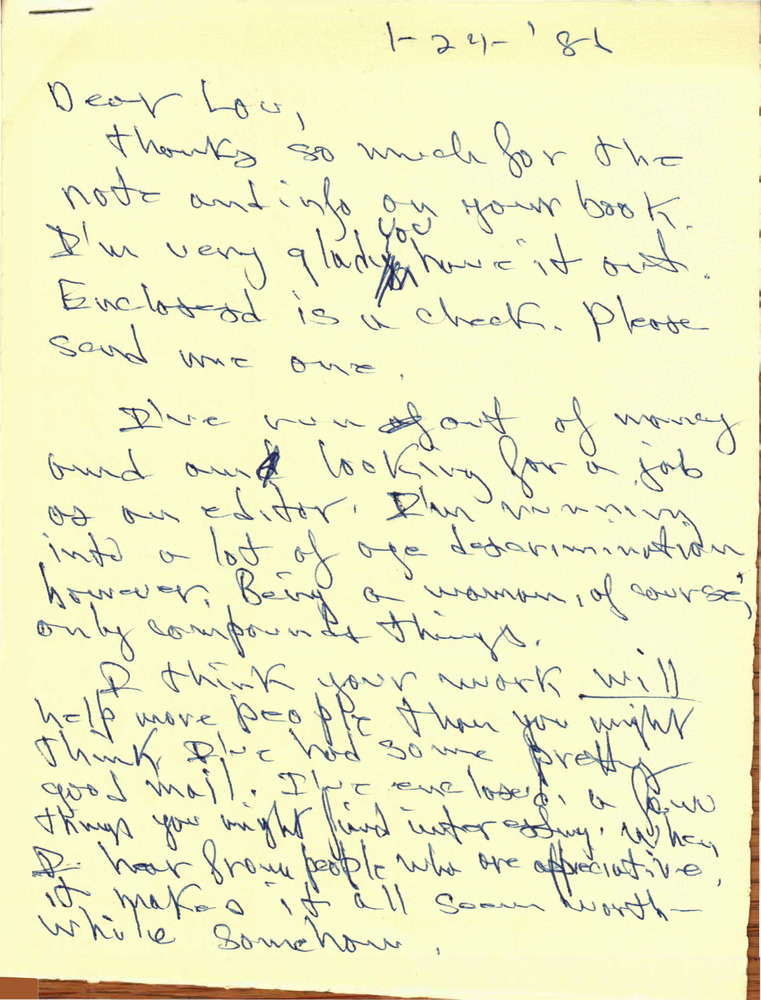 1-24-'86
Dear Lou,
Thanks so much for the
note and info on your book.
I'm very glad you have it out.
Enclosed is a check. Please
send me one.
I've run out of money
and am looking for a job
as an editor. I'm running
into a lot of age descrimination
however. Being a woman, of course,
only compounds things.
I think your work will
help more people than you might
think. I've had some pretty
good mail. I've enclosed a few
things you might find interesting. When
I hear from people who are appreciative,
it makes it all seem worth-
while somehow.